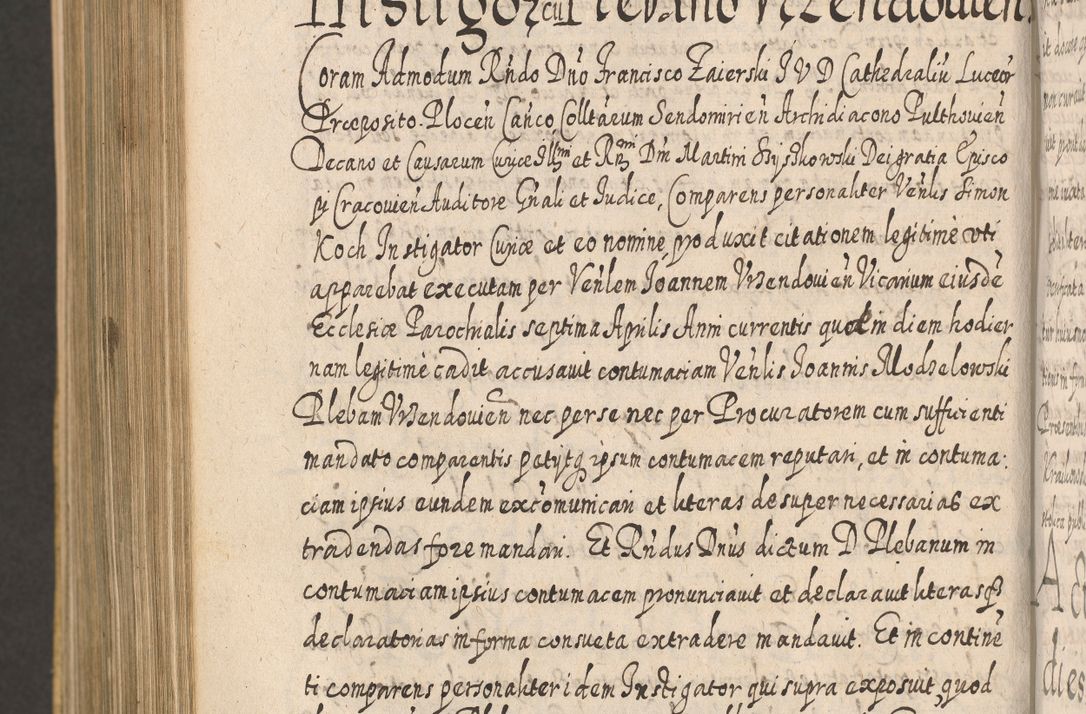 Instigoris cu Plebano Vrzendouien.
Coram Admodum Rndo Dno Francisco Zaierski I V D Cathedraliũ Luceor
Præposito. Plocen Canco Colltarum Sendomirien Archidiacono Pulthouien
Decano et Causarum Curiæ Illmi et Rmi Dni Martini Szyszkowski Dei gratia Episco
pi Cracouien Auditore Gnali et Iudice, Comparens personaliter Venlis Simon
Koch Instigator Curiæ et eo nomine produxit citationem legitimè vti
apparebat executam per Venlem Joannem Vrzendouien Vicarium eiusdē
Ecclesiæ Parochialis septima Aprilis Anni currentis quod in diem hodier
nam legitimè cadit accusauit contumaciam Venlis Joannis Modzelowski
Plebani Vrzendouien nec per se nec per Procuratorem cum sufficienti
mandato comparentis petytq ipsum contumacem reputari, et in contuma:
ciam ipsius eundem excomunicari et literas desuper necessarias ex
tradendas fore mandari. Et Rndus Dnus dictum D Plebanum in
contumaciam ipsius contumacem pronunciauit et declarauit literasq
declaratorias in forma consueta extradere mandauit. Et in continē
ti comparens personaliter idem Instigator qui supra exposuit, quod